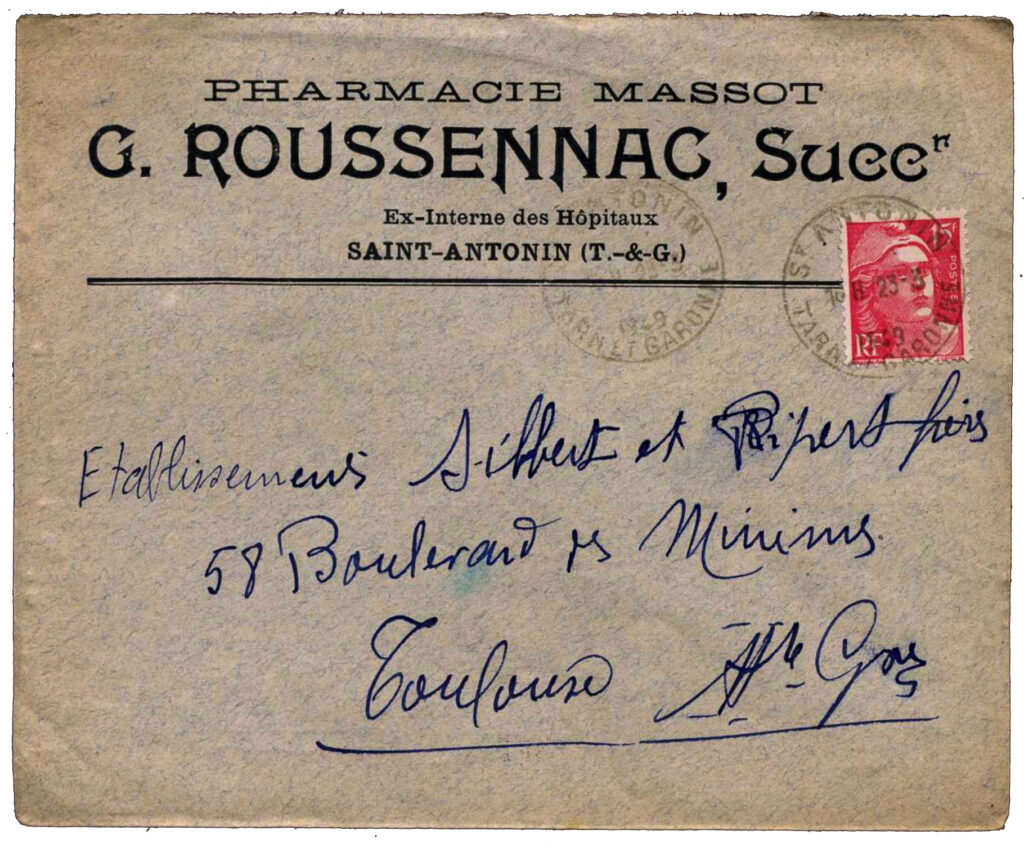 PHARMACIE MASSOT
G. ROUSSENNAC, Succr
Ex-Interne des Hôpitaux
SAINT-ANTONIN (T.-&-G.)
ST ANTONIN
16 H 23-3
1949
TARN ET GARONNE
15f
POSTES
RF
ANTONIN
1949
TARN ET GARONNE
Etablissements Silbert et Ripert frères
58 Boulevard des Minimes
Toulouse Hte Gne